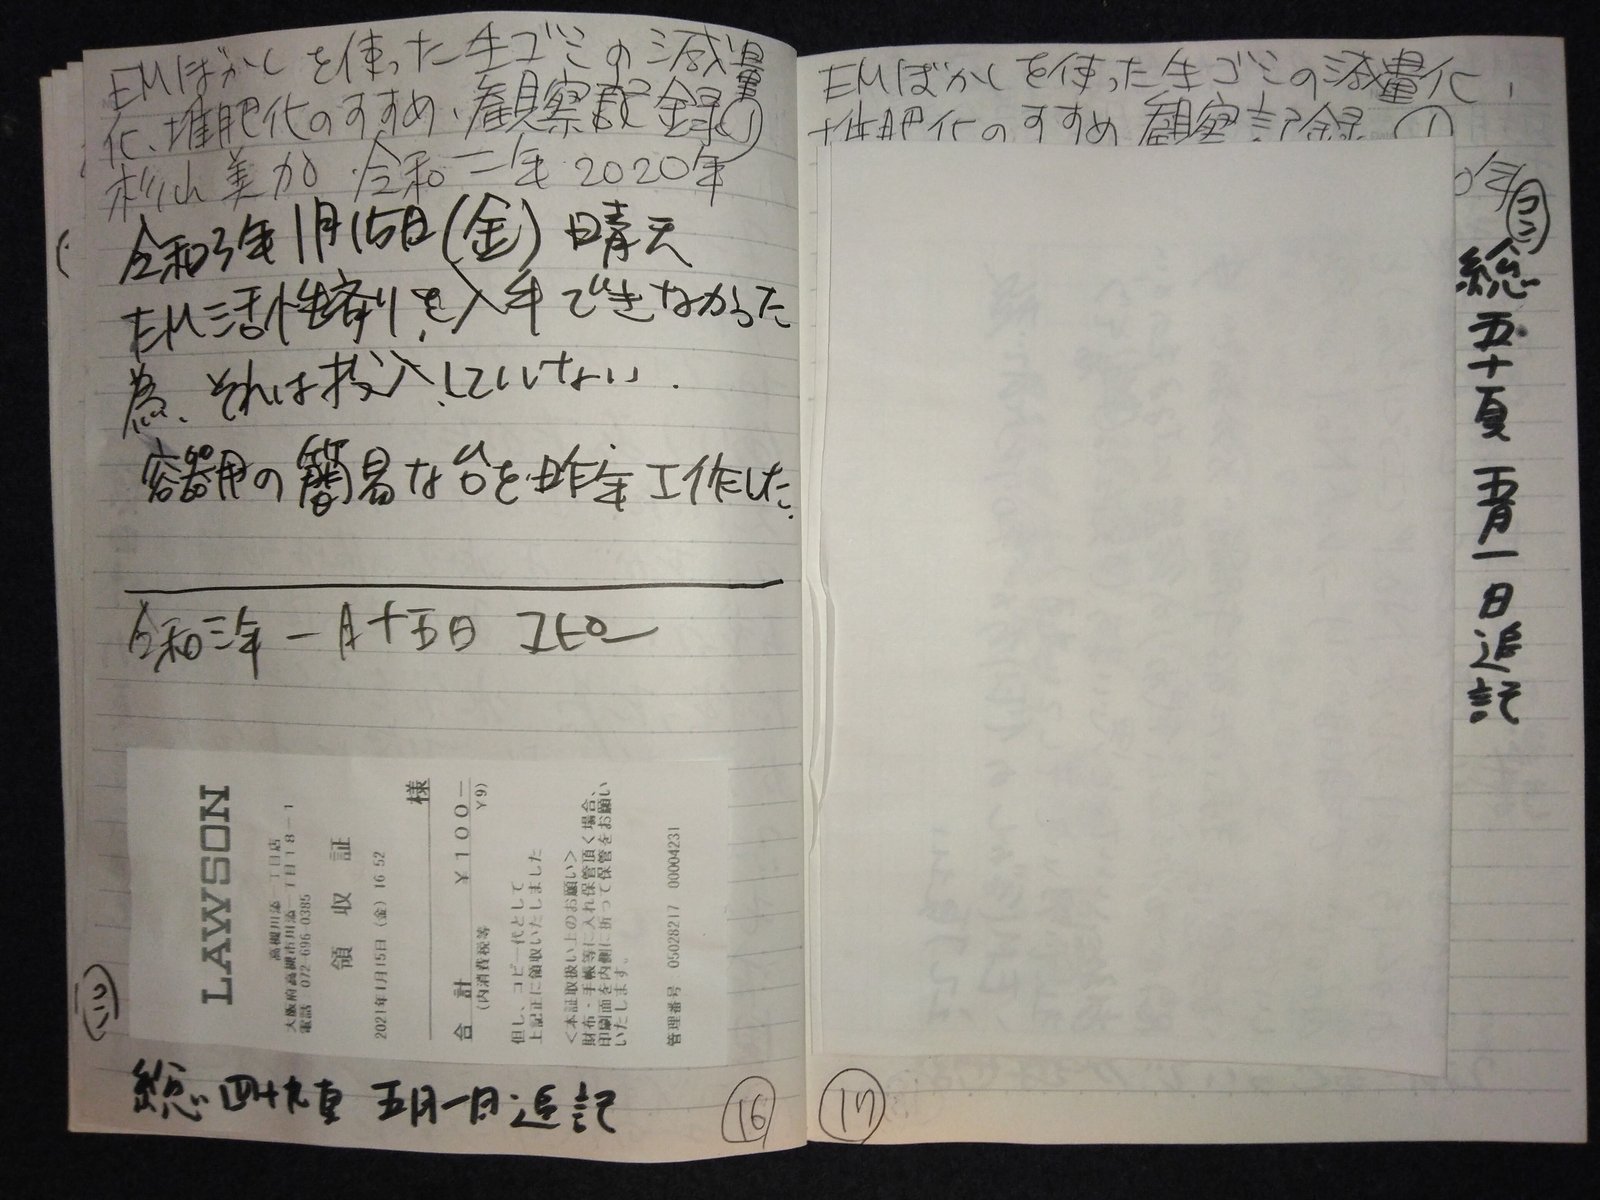 EMぼかしを使った生ゴミの減量
化、堆肥化のすすめ、観察記録①
杉山美加 令和二年 2020年
令和3年1月15日(金) 晴天
EM活性剤を入手できなかった
為、それは投入していない.
容器用の簡易な台を昨年工作した.
令和三年一月十五日 コピー
LAWSON
高槻川添一丁目店
大阪府高槻市川添一丁目18-1
電話 072-696-0385
領収証
2021年1月15日(金) 16:52
様
合計 ¥100-
(内消費税等 ¥9)
但し、コピー代として
上記正に領収いたしました
<本証取扱い上のお願い>
財布・手帳等に入れ保管頂く場合、
印刷面を内側に折って保管をお願い
いたします。
管理番号 05028217 00004231
総四十九頁 五月一日追記
16
EMぼかしを使った生ゴミの減量化、
堆肥化のすすめ 観察記録
0年
総五十頁 五月一日追記
17